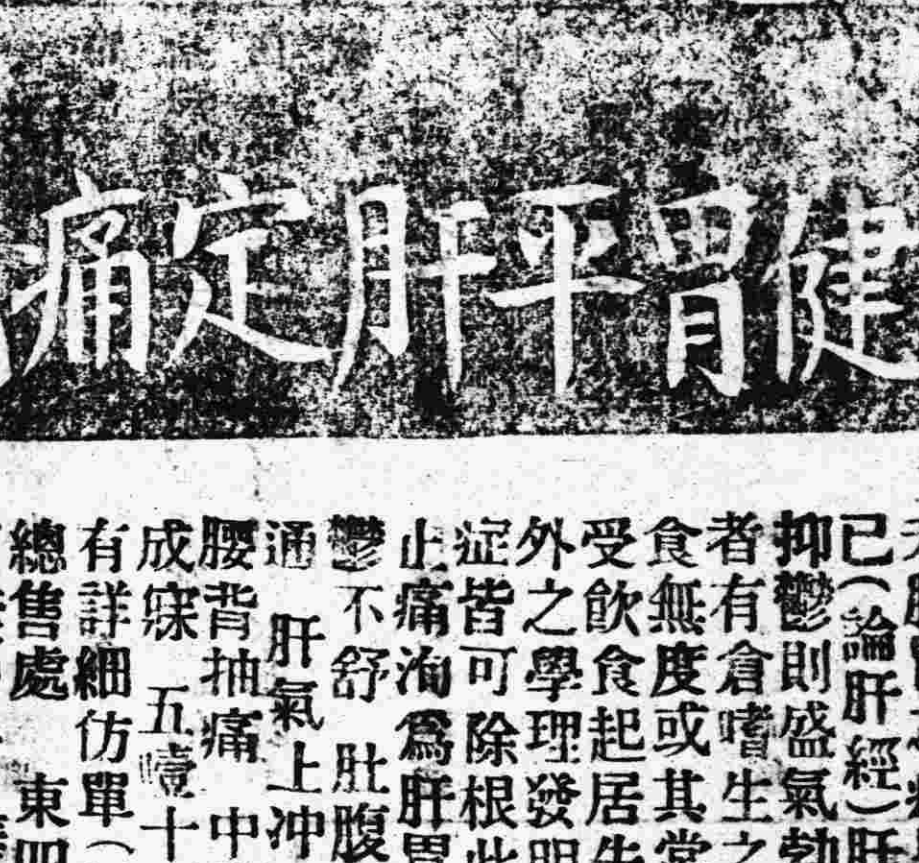 健胃平肝定痛
已（論肝經）肝
抑鬱則盛氣勃
者有倉嗜生之
食無度或其常
受飲食起居失
外之學理發明
症皆可除根此
止痛洵爲肝胃
鬱不舒 肚腹
通 肝氣上冲
腰背抽痛 中
成寐 五噎十
有詳細仿單（
總售處 東四